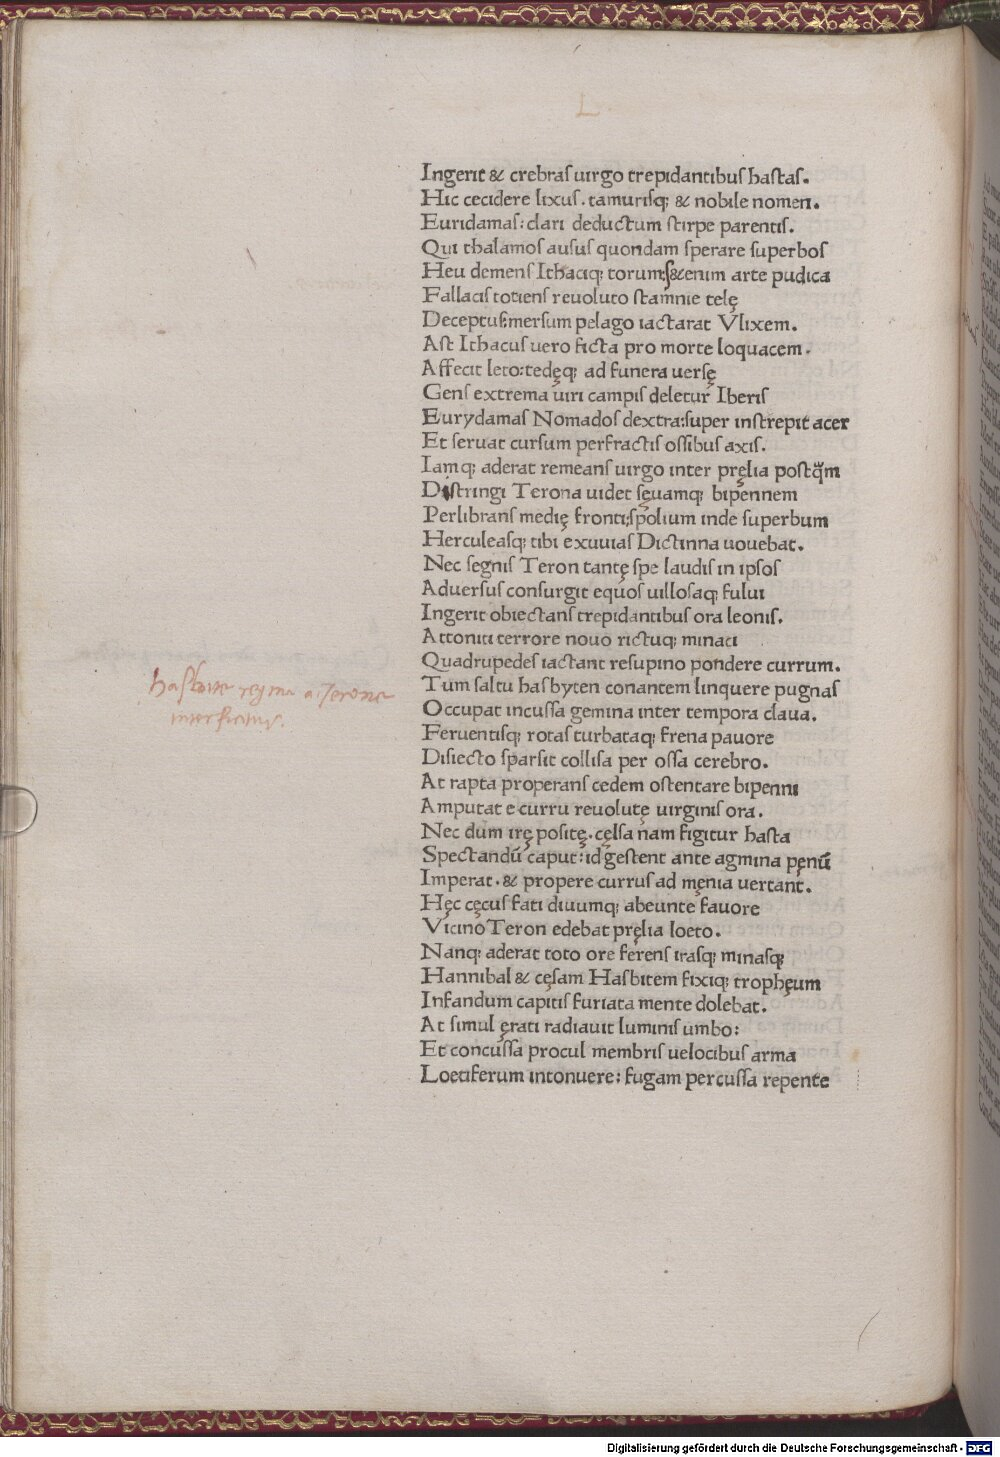 L
Ingerit & crebras uirgo trepidantibus hastas.
Hic cecidere lixus. tamurisq; & nobile nomen.
Euridamas: clari deductum stirpe parentis.
Qui thalamos ausus quondam sperare superbos
Heu demens Ithaciq; torum: s& enim arte pudica
Fallacis totiens reuoluto stamnie telę
Deceptus: mersum pelago iactarat Vlixem.
Ast Ithacus uero ficta pro morte loquacem.
Affecit leto: tedęq; ad funera uersę
Gens extrema uiri campis deletur Iberis
Eurydamas Nomados dextra: super instrepit acer
Et seruat cursum perfractis ossibus axis.
Iamq; aderat remeans uirgo inter pręlia postq̃m
Distringi Terona uidet sęuamq; bipennem
Perlibrans medię fronti: spolium inde superbum
Herculeasq; tibi exuuias Dictinna uouebat.
Nec segnis Teron tantę spe laudis in ipsos
Aduersus consurgit equos uillosaq; fului
Ingerit obiectans trepidantibus ora leonis.
Attoniti terrore nouo rictuq; minaci
Quadrupedes iactant resupino pondere currum.
Tum saltu hasbyten conantem linquere pugnas
Occupat incussa gemina inter tempora claua.
Feruentisq; rotas turbataq; frena pauore
Disiecto sparsit collisa per ossa cerebro.
At rapta properans cedem ostentare bipenni
Amputat e curru reuolutę uirginis ora.
Nec dum irę positę. cęlsa nam figitur hasta
Spectandū caput: id gestent ante agmina pęnū
Imperat. & propere currus ad męnia uertant.
Hęc cęcus fati diuumq; abeunte fauore
Vicino Teron edebat pręlia loeto.
Nanq; aderat toto ore ferens irasq; minasq;
Hannibal & cęsam Hasbitem fixiq; trophęum
Infandum capitis furiata mente dolebat.
At simul ęrati radiauit luminis umbo:
Et concussa procul membris uelocibus arma
Loetiferum intonuere: fugam percussa repente
hasbite regina a Terone
interficitur.
Digitalisierung gefördert durch die Deutsche Forschungsgemeinschaft - DFG